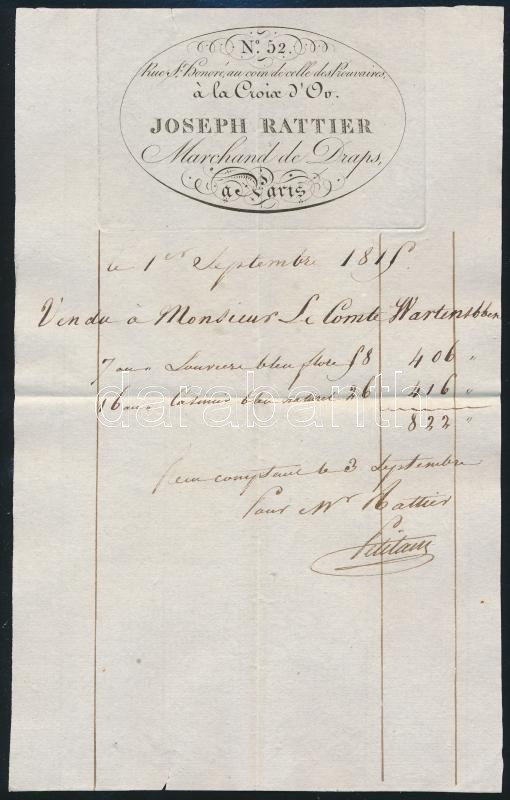 N.° 52.
Rue S.t Honoré, au coin de celle des Prouvaires,
à la Croix d'Or.
JOSEPH RATTIER
Marchand de Draps,
à Paris
le 1er Septembre 1815.
Vendu à Monsieur Le Comte
7 au " bleu 58 406 "
16 au " Casimir bleu naturel 26 416 "
822 "
comptant le 3 Septembre
Pour Mr Rattier
darabanth